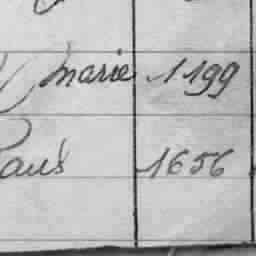 marie 1199
Paul 1656